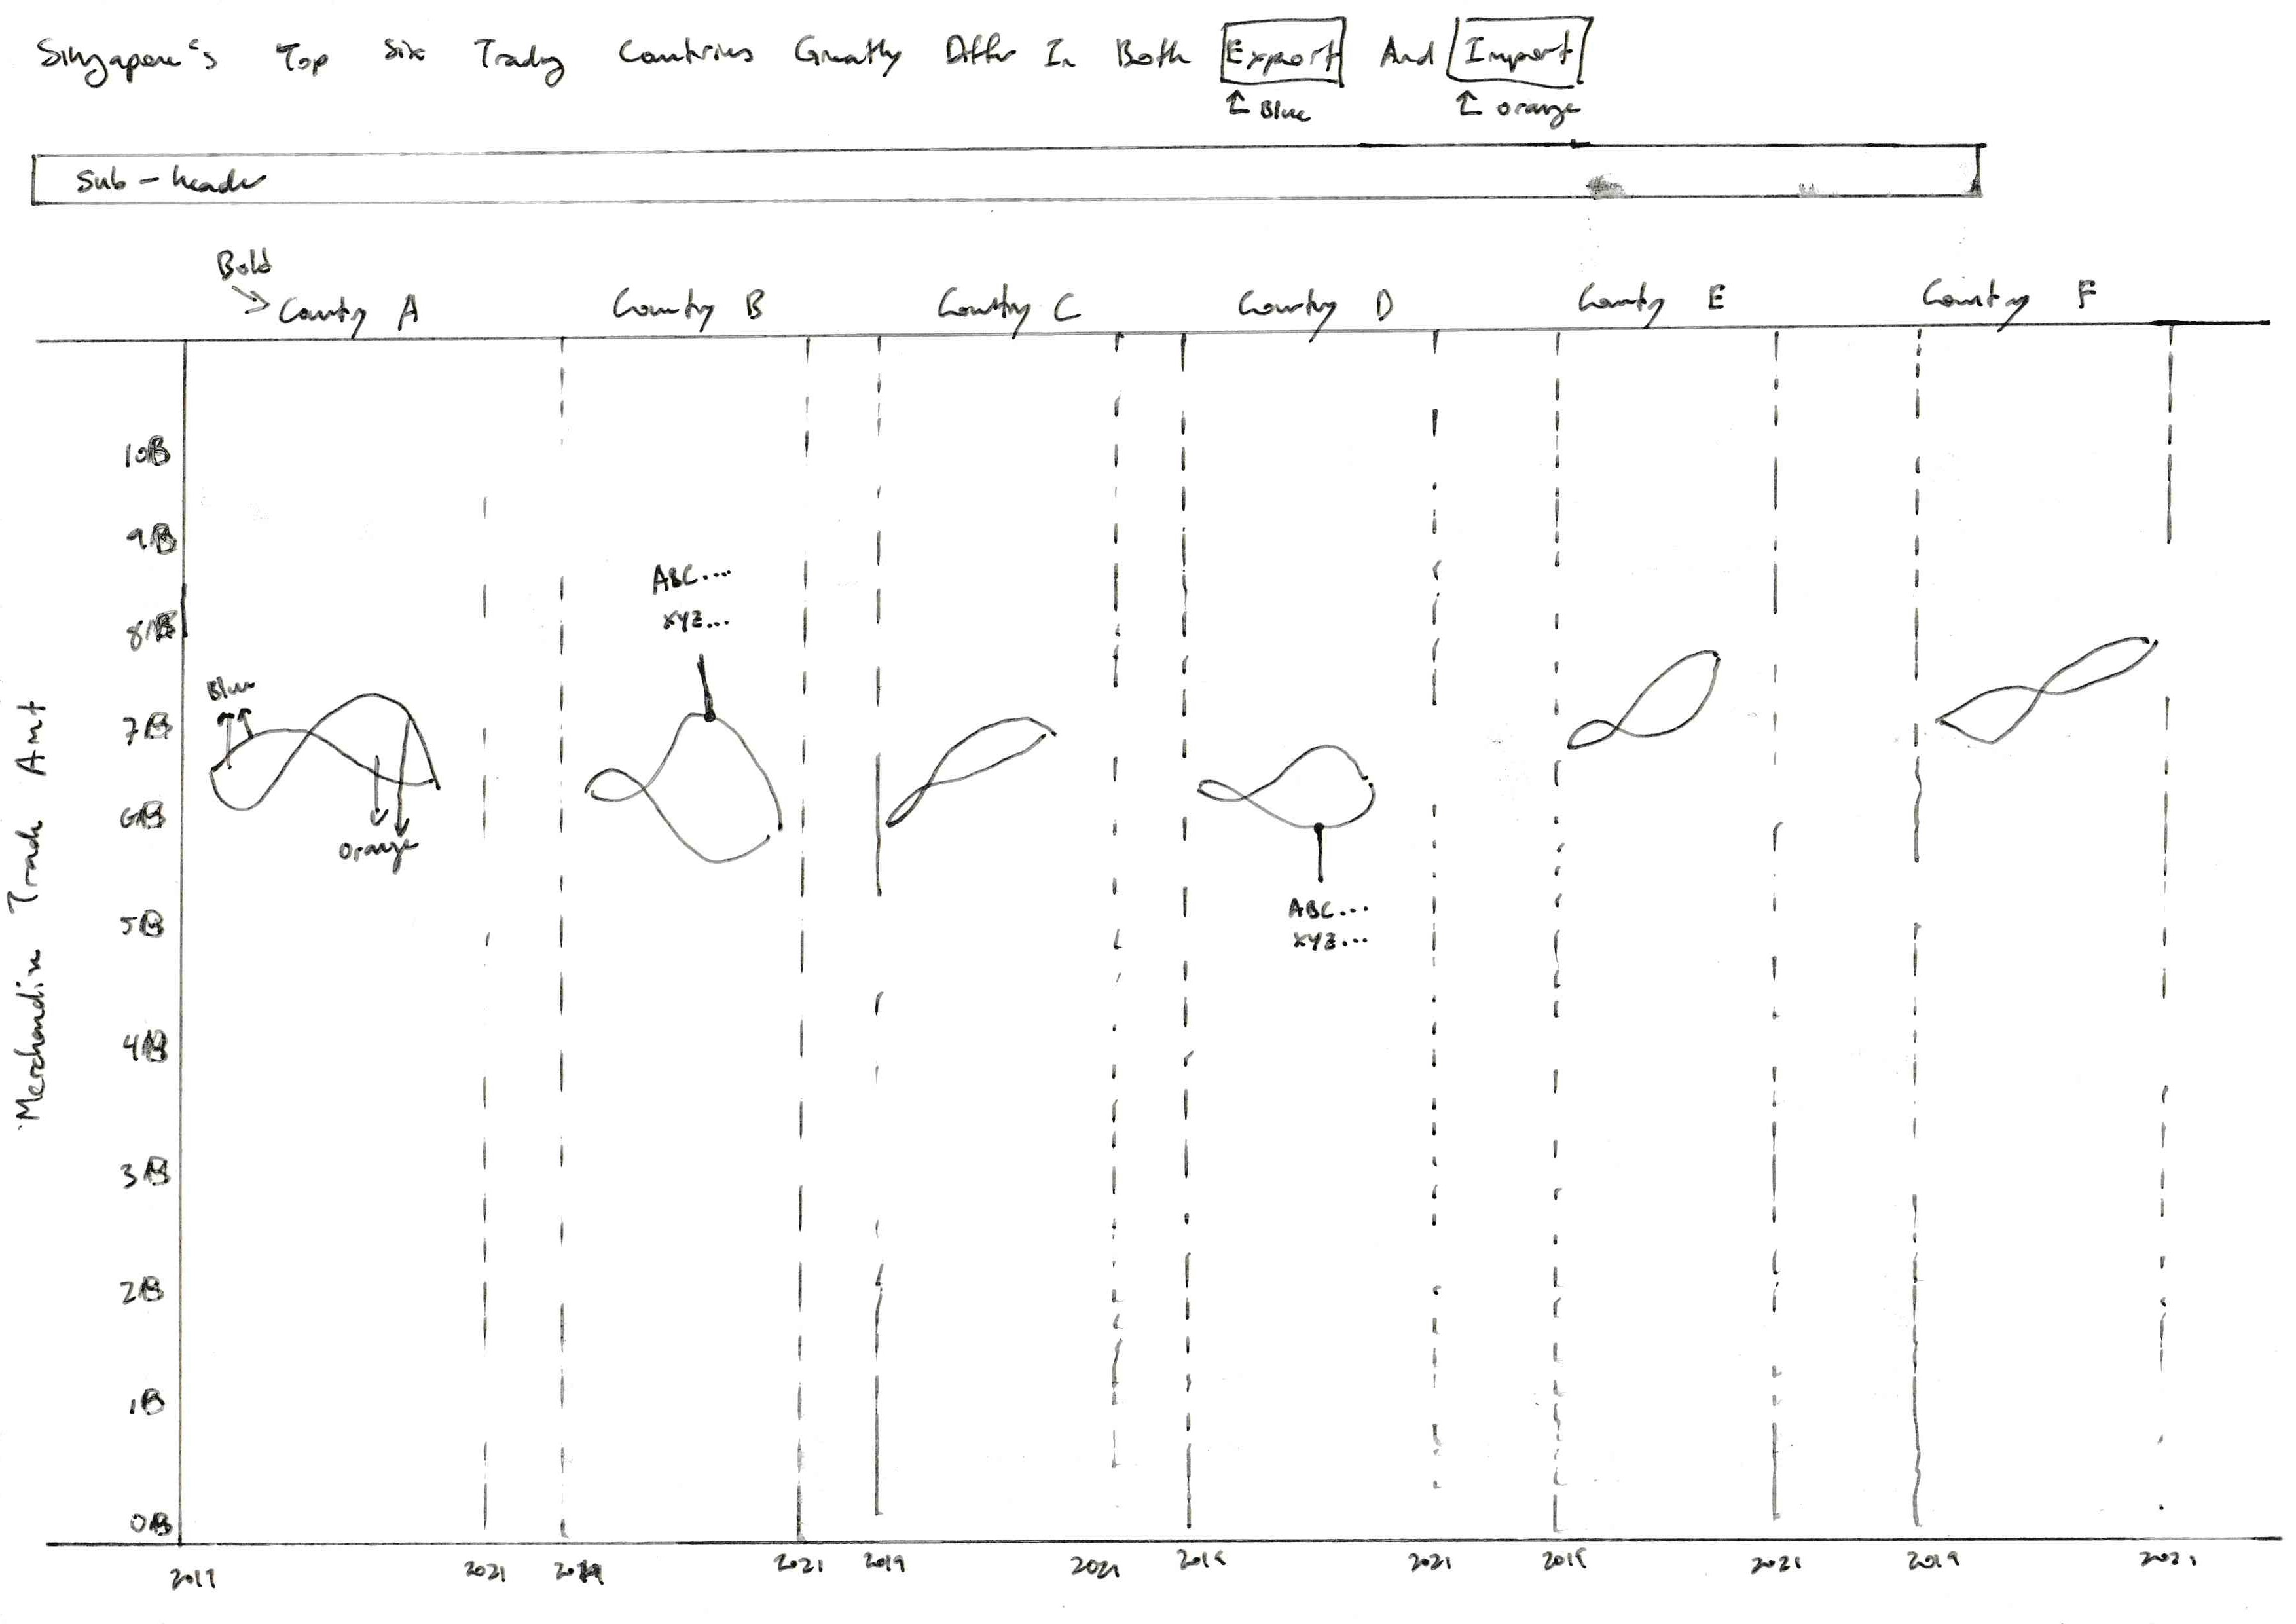 Singapore's Top Six Trading Countries Greatly Differ In Both Export And Import
Blue
Orange
Sub-header
Bold
Country A
Country B
Country C
Country D
Country E
Country F
Merchandise Trade Amt
10B
9B
8B
7B
6B
5B
4B
3B
2B
1B
0B
Blue
Orange
ABC....
XYZ...
ABC...
XYZ...
2019
2021
2019
2021
2019
2021
2019
2021
2019
2021
2019
2021